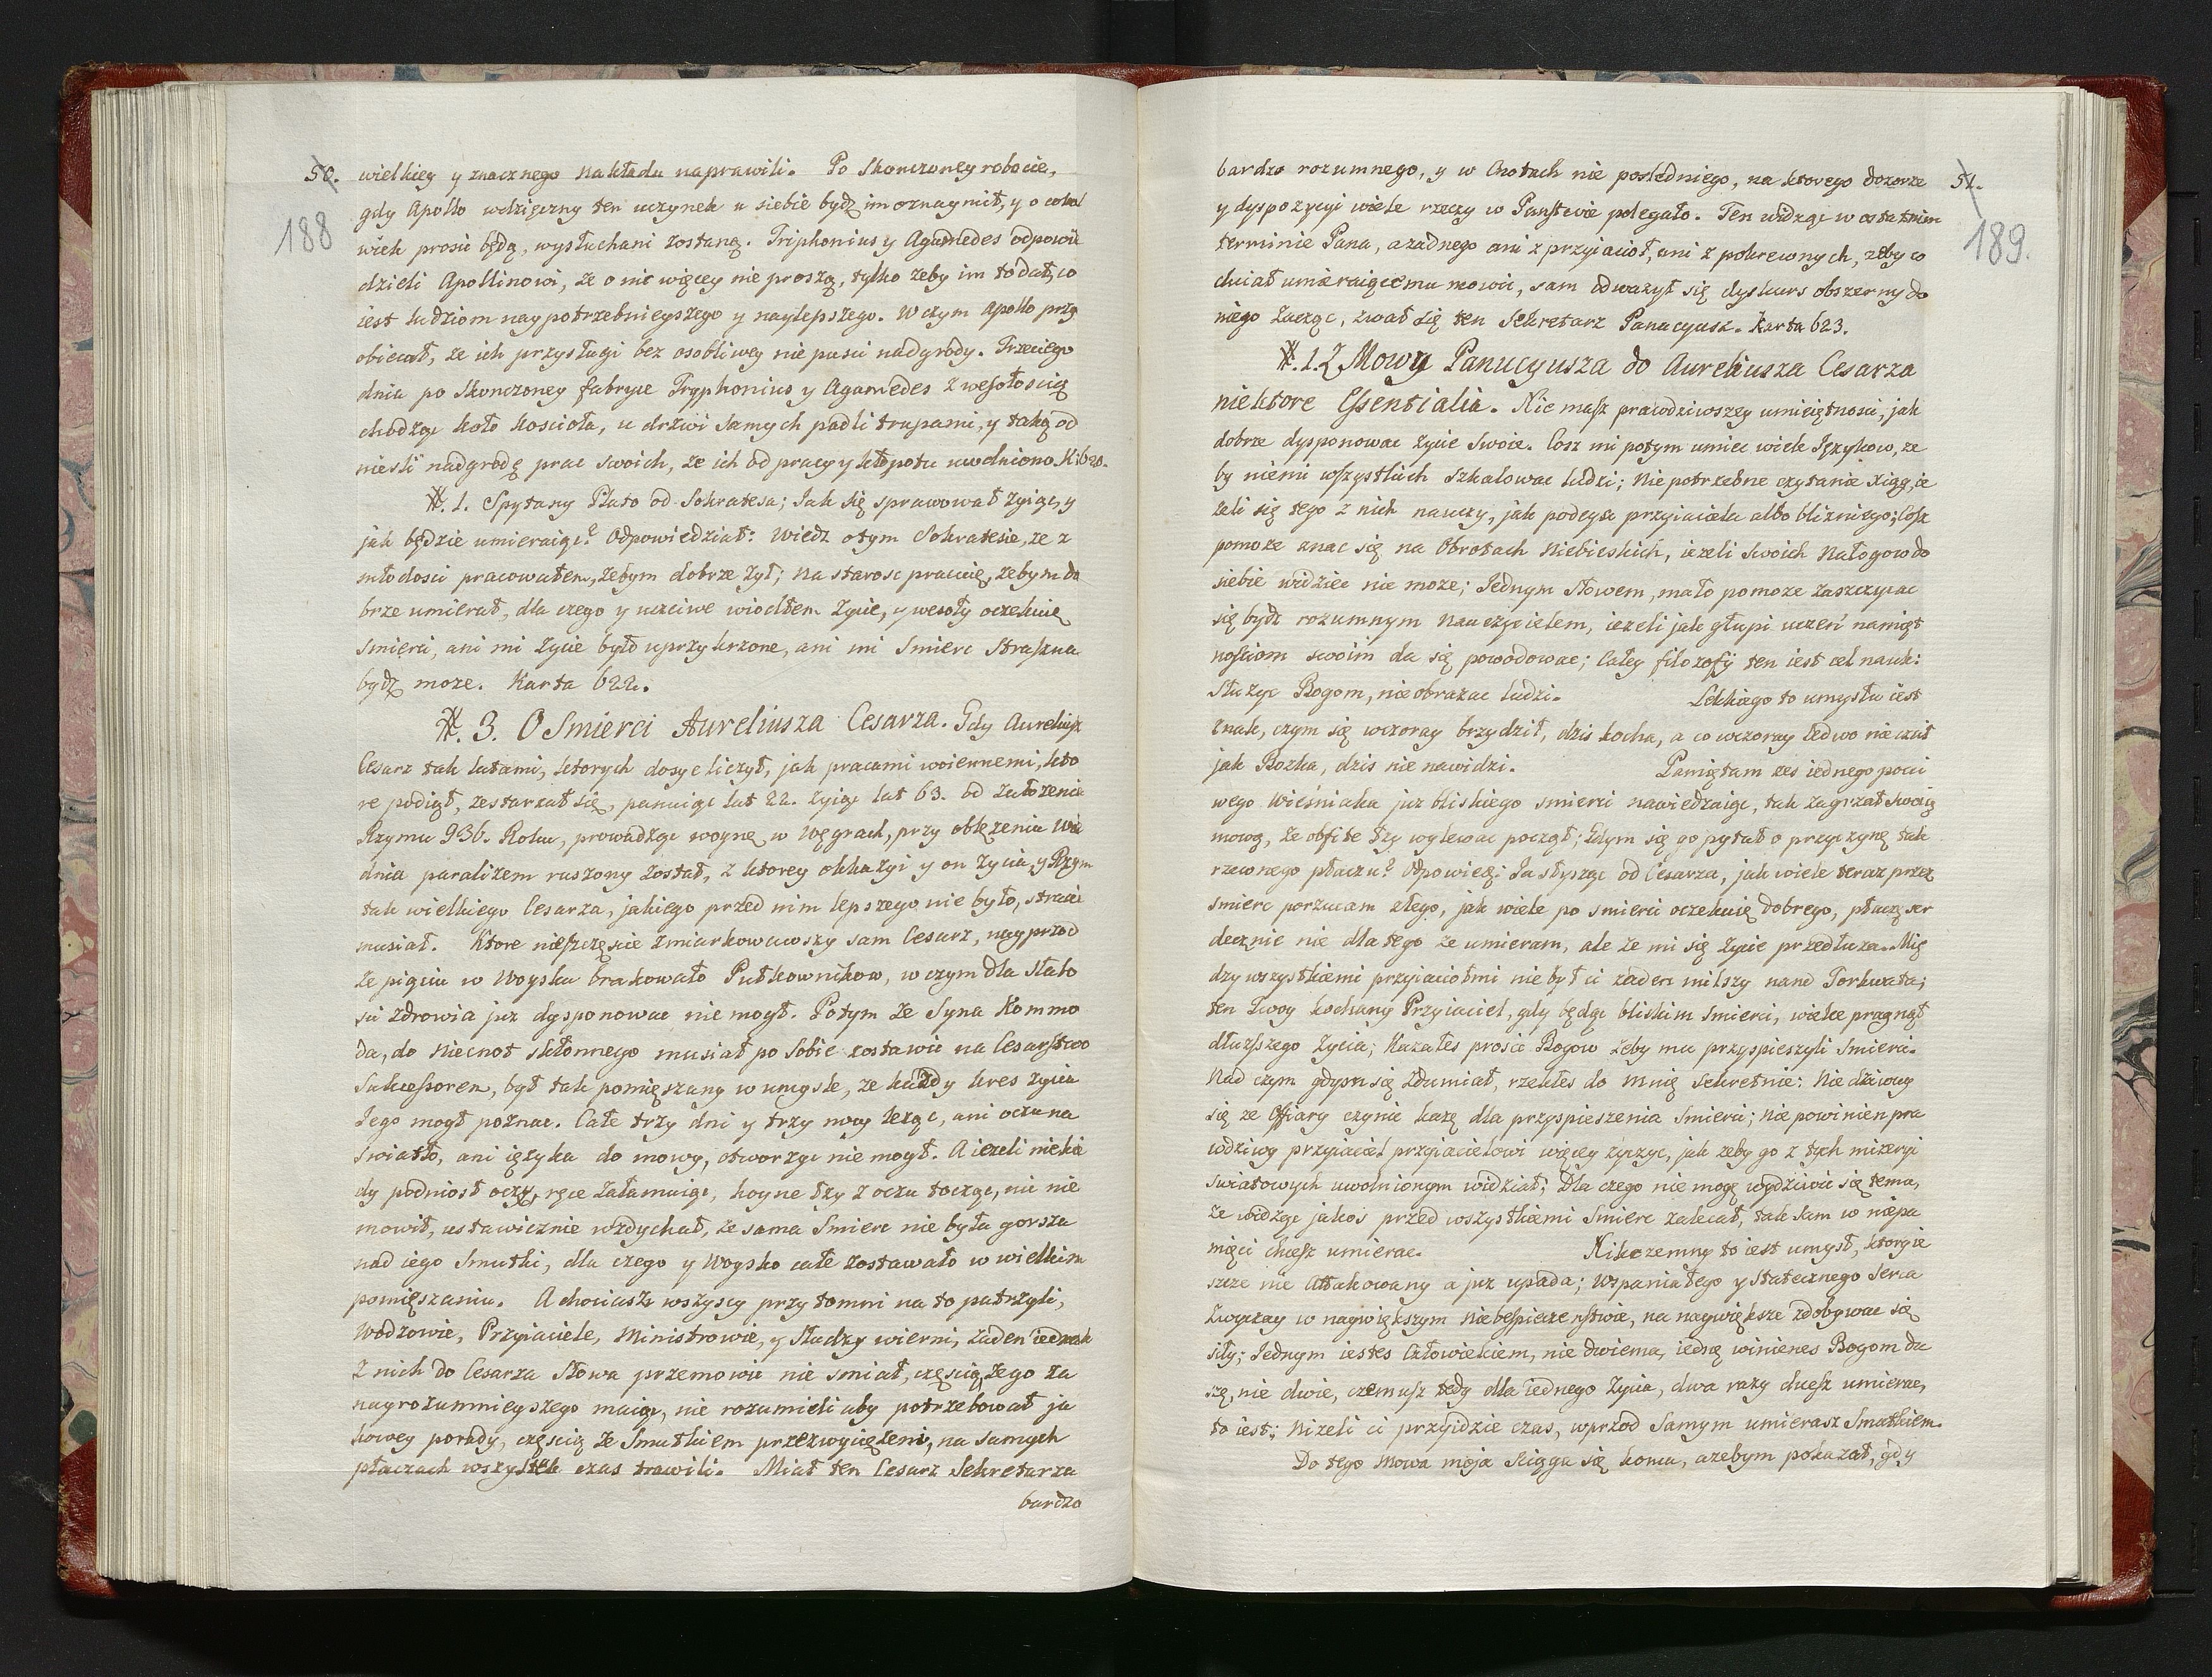 50. wielkiey y znacznego nakładu naprawili. Po skonczoney robocie,
188
gdy Apollo wdzięczny ten uczynek u siebie bydz im oznaymił, y o cokol
wiek prosic będą, wysłuchani zostaną. Triphonius y Agamedes odpowie
dzieli Apollinowi, ze o nic więcey nie proszą, tylko zeby im to dał, co
iest ludziom naypotrzebnieyszego y naylepszego. W czym Apollo przy
obiecał, ze ich przysługi bez osobliwey nie pusci nadgrody. Trzeciego
dnia po skonczoney fabryce Tryphonius y Agamedes z wesołoscią
chodząc koło koscioła, u drzwi samych padli trupami, y taką od
niesli nadgrodę prac swoich, ze ich od pracy y kłopotu uwolniono. K. 620.
#. 1. Spytany Plato od Sokratesa; Jak się sprawował zyiąc, y
jak będzie umieraiąc? Odpowiedział: Wiedz o tym Sokratesie, ze z
młodosci pracowałem, zebym dobrze zył; na starosc pracuię, zebym do
brze umierał, dla czego y uczciwe wiodłem zycie, y wesoły oczekuię
smierci, ani mi zycie było uprzykrzone, ani mi smierc straszna
bydz moze. Karta 622.
#. 3. O Smierci Aureliusza Cesarza. Gdy Aureliusz
Cesarz tak latami, ktorych dosyc liczył, jak pracami woiennemi, kto
re podiął, zestarzał się, panuiąc lat 22. zyiąc lat 63. od załozenia
Rzymu 936. Roku, prowadząc woynę w Węgrach, przy oblęzeniu Wie
dnia paralizem ruszony został, z ktorey okkazyi y on zycia, y Rzym
tak wielkiego Cesarza, jakiego przed nim lepszego nie było, stracic
musiał. Ktore nieszczęscie zmiarkowawszy sam Cesarz, nayprzod
ze pięciu w Woysku brakowało Pułkownikow, w czym dla słabo
sci zdrowia juz dysponowac nie mogł. Potym ze Syna Kommo
da, do niecnot skłonnego musiał po sobie zostawic na Cesarstwo
Sukcessorem, był tak pomięszany w umysle, ze kazdy kres zycia
Jego mogł poznac. Całe trzy dni y trzy nocy leząc, ani oczu na
swiatło, ani ięzyka do mowy, otworzyc nie mogł. A iezeli niekie
dy podniosł oczy, ręce załamuiąc, hoyne łzy z oczu tocząc, nic nie
mowił, ustawicznie wzdychał, ze sama Smierc nie była gorsza
nad iego Smutki, dla czego y Woysko całe zostawało w wielkim
pomięszaniu. A chociasz wszyscy przytomni na to patrzyli,
Wodzowie, Przyiaciele, Ministrowie, y Słudzy wierni, zaden iednak
z nich do Cesarza słowa przemowic nie smiał, częscią Jego za
nayrozumnieyszego maiąc, nie rozumieli aby potrzebował ja
kowey porady, częscią ze Smutkiem przezwycięzeni, na samych
płaczach wszystek czas trawili. Miał ten Cesarz Sekretarza
bardzo
bardzo rozumnego, y w Cnotach nie posledniego, na ktorego dozorze 51.
y dyspozycyi wiele rzeczy w Panstwie polegało. Ten widząc w ostatnim
189.
terminie Pana, a zadnego ani z przyiacioł, ani z pokrewnych, zeby co
chciał umieraiącemu mowic, sam odwazył się dyskurs obszerny do
niego zacząc, zwał się ten Sekretarz Panucyusz. Karta 623.
#. 1. Z Mowy Panucyusza do Aureliusza Cesarza
niektore Essentialia. Nie masz prawdziwszey umieiętnosci, jak
dobrze dysponowac zycie swoie. Cosz mi potym umiec wiele Językow, ze
by niemi wszystkich szkalowac ludzi; Niepotrzebne czytanie Xiąg, ie
zeli się tego z nich nauczy, jak podeysc przyiaciela albo blizniego; Cosz
pomoze znac się na Obrotach Niebieskich, iezeli swoich Nałogow do
siebie widziec nie moze; Jednym słowem, mało pomoze zaszczycac
się bydz rozumnym Nauczycielem, iezeli jak głupi uczeń namięt
nosciom swoim da się powodowac; Całey filozofij ten iest cel nauk:
słuzyc Bogom, nie obrazac ludzi. Lekkiego to umysłu iest
znak, czym się wczoray brzydził, dzis kocha, a co wczoray ledwo nie czcił
jak Bozka, dzis nienawidzi. Pamiętam zes iednego pocci
wego Wieśniaka juz bliskiego smierci nawiedzaiąc, tak zagrzał swoią
mową, ze obfite łzy wylewac począł; Gdym się go pytał o przyczynę tak
rzewnego płaczu? Odpowie: Ja słysząc od Cesarza, jak wiele teraz przez
smierc porzucam złego, jak wiele po smierci oczekuię dobrego, płaczę ser
decznie nie dlatego ze umieram, ale ze mi się zycie przedłuza. Mię
dzy wszystkiemi przyiaciołmi nie był ci zaden milszy nand Torkwata;
ten Twoy kochany Przyiaciel, gdy będąc bliskim smierci, wielce pragnął
dłuzszego zycia; Kazałes prosic Bogow zeby mu przyspieszyli smierci.
Nad czym gdym się zdumiał, rzekłes do mnie sekretnie: Nie dziwuy
się ze Ofiary czynic kazę dla przyspieszenia smierci; Nie powinien pra
wdziwy przyiaciel przyiacielowi więcey zyczyc, jak zeby go z tych mizeryi
swiatowych uwolnionym widział; Dla czego nie mogę wydziwic się temu,
ze widząc jakos przed wszystkiemi smierc zalecał, tak sam w niepa
mięci chcesz umierac. Nikczemny to iest umysł, ktory ie
szcze nie attakowany a juz upada; wspaniałego y statecznego serca
zwyczay w naywiększym niebespieczenstwie, na naywiększe zdobywac się
siły; Jednym iestes Człowiekiem, nie dwiema, iednę winienes Bogom du
szę, nie dwie, czemusz tedy dla iednego zycia, dwa razy chcesz umierac,
to iest; Nizeli ci przyidzie czas, wprzod samym umierasz Smutkiem.
Do tego Mowa moja sciąga się konca, azebym pokazał, gdy